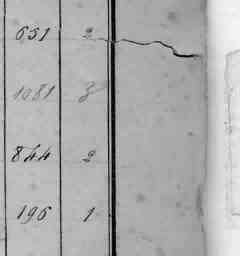 651 2
1081 3
844 2
196 1